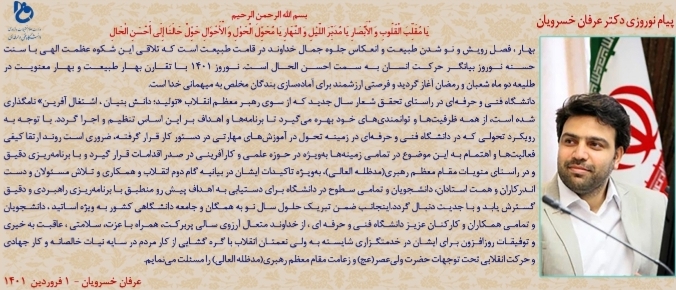 پیام نوروزی دکتر عرفان خسرویان
بسم الله الرحمن الرحیم
یَا مُقَلِّبَ الْقُلُوبِ وَ الْأَبْصَارِ یَا مُدَبِّرَ اللَّیْلِ وَ النَّهَارِ یَا مُحَوِّلَ الْحَوْلِ وَ الْأَحْوَالِ حَوِّلْ حَالَنَا إِلَى أَحْسَنِ الْحَالِ
بهار ، فصل رویش و نو شدن طبیعت و انعکاس جلوه جمال خداوند در قامت طبیعت است که تلاقی این شکوه عظمت الهی با سنت
حسنه نوروز بیانگر حرکت انسان به سمت احسن الحال است. نوروز ۱۴۰۱ با تقارن بهار طبیعت و بهار معنویت در
طلیعه دو ماه شعبان و رمضان آغاز گردید و فرصتی ارزشمند برای آماده‌سازی بندگان مخلص به میهمانی خدا است.
دانشگاه فنی و حرفه‌ای در راستای تحقق شعار سال جدید که از سوی رهبر معظم انقلاب «تولید؛ دانش بنیان ، اشتغال آفرین» نامگذاری
شده است، از همه ظرفیت‌ها و توانمندی‌های خود بهره می‌گیرد تا برنامه‌ها و اهداف بر این اساس تنظیم و اجرا گردد. با توجه به
رویکرد تحولی که در دانشگاه فنی و حرفه‌ای در زمینه تحول در آموزش‌های مهارتی در دستور کار قرار گرفته، ضروری است روند ارتقا کیفی
فعالیت‌ها و اهتمام به این موضوع در تمامی زمینه‌ها به‌ویژه در حوزه علمی و کارآفرینی در صدر اقدامات قرار گیرد و با برنامه‌ریزی دقیق
و در راستای منویات مقام معظم رهبری(مدظله العالی)، به‌ویژه تاکیدات ایشان در بیانیه گام دوم انقلاب و همکاری و تلاش مسئولان و دست
اندرکاران و همت استادان، دانشجویان و تمامی سطوح در دانشگاه برای دستیابی به اهداف پیش رو منطبق با برنامه‌ریزی راهبردی و دقیق
گسترش یابد و با جدیت دنبال گردد.اینجانب ضمن تبریک حلول سال نو به همگان و جامعه دانشگاهی کشور به ویژه اساتید ، دانشجویان
و تمامی همکاران و کارکنان عزیز دانشگاه فنی و حرفه ای ، از خداوند متعال آرزوی سالی پربرکت، همراه با عزت، سلامتی ، عاقبت به خیری
و توفیقات روزافزون برای ایشان در خدمتگزاری شایسته به ولی نعمتان انقلاب با گره گشایی از کار مردم در سایه نیات خالصانه و کار جهادی
و حرکت انقلابی تحت توجهات حضرت ولی‌عصر(عج) و زعامت مقام معظم رهبری(مدظله العالی) را مسئلت می‌نمایم.
عرفان خسرویان - ۱ فروردین ۱۴۰۱